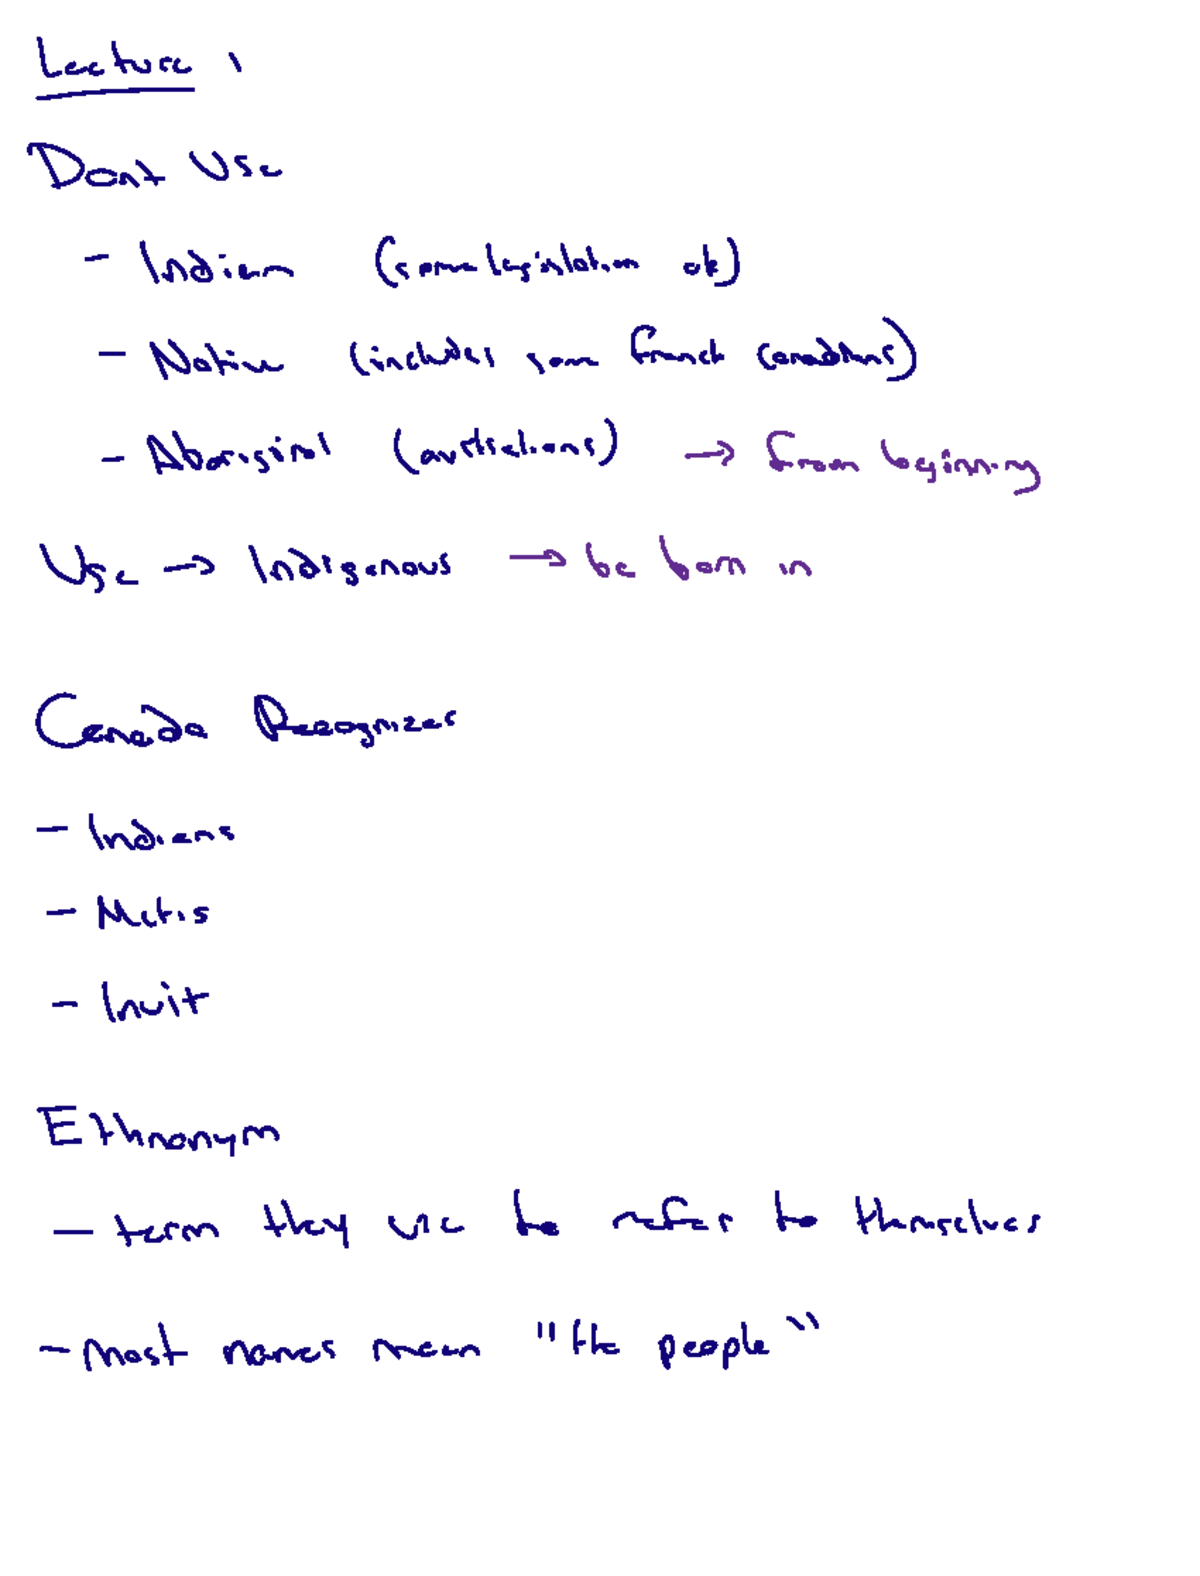 Lecture 1
Dont Use
- Indian (some legislation ok)
- Native (includes some french canadians)
- Aboriginal (australians) → from beginning
Use → Indigenous → be born in
Canada Recognizes
- Indians
- Metis
- Inuit
Ethnonym
- term they use to refer to themselves
- most names mean "the people"